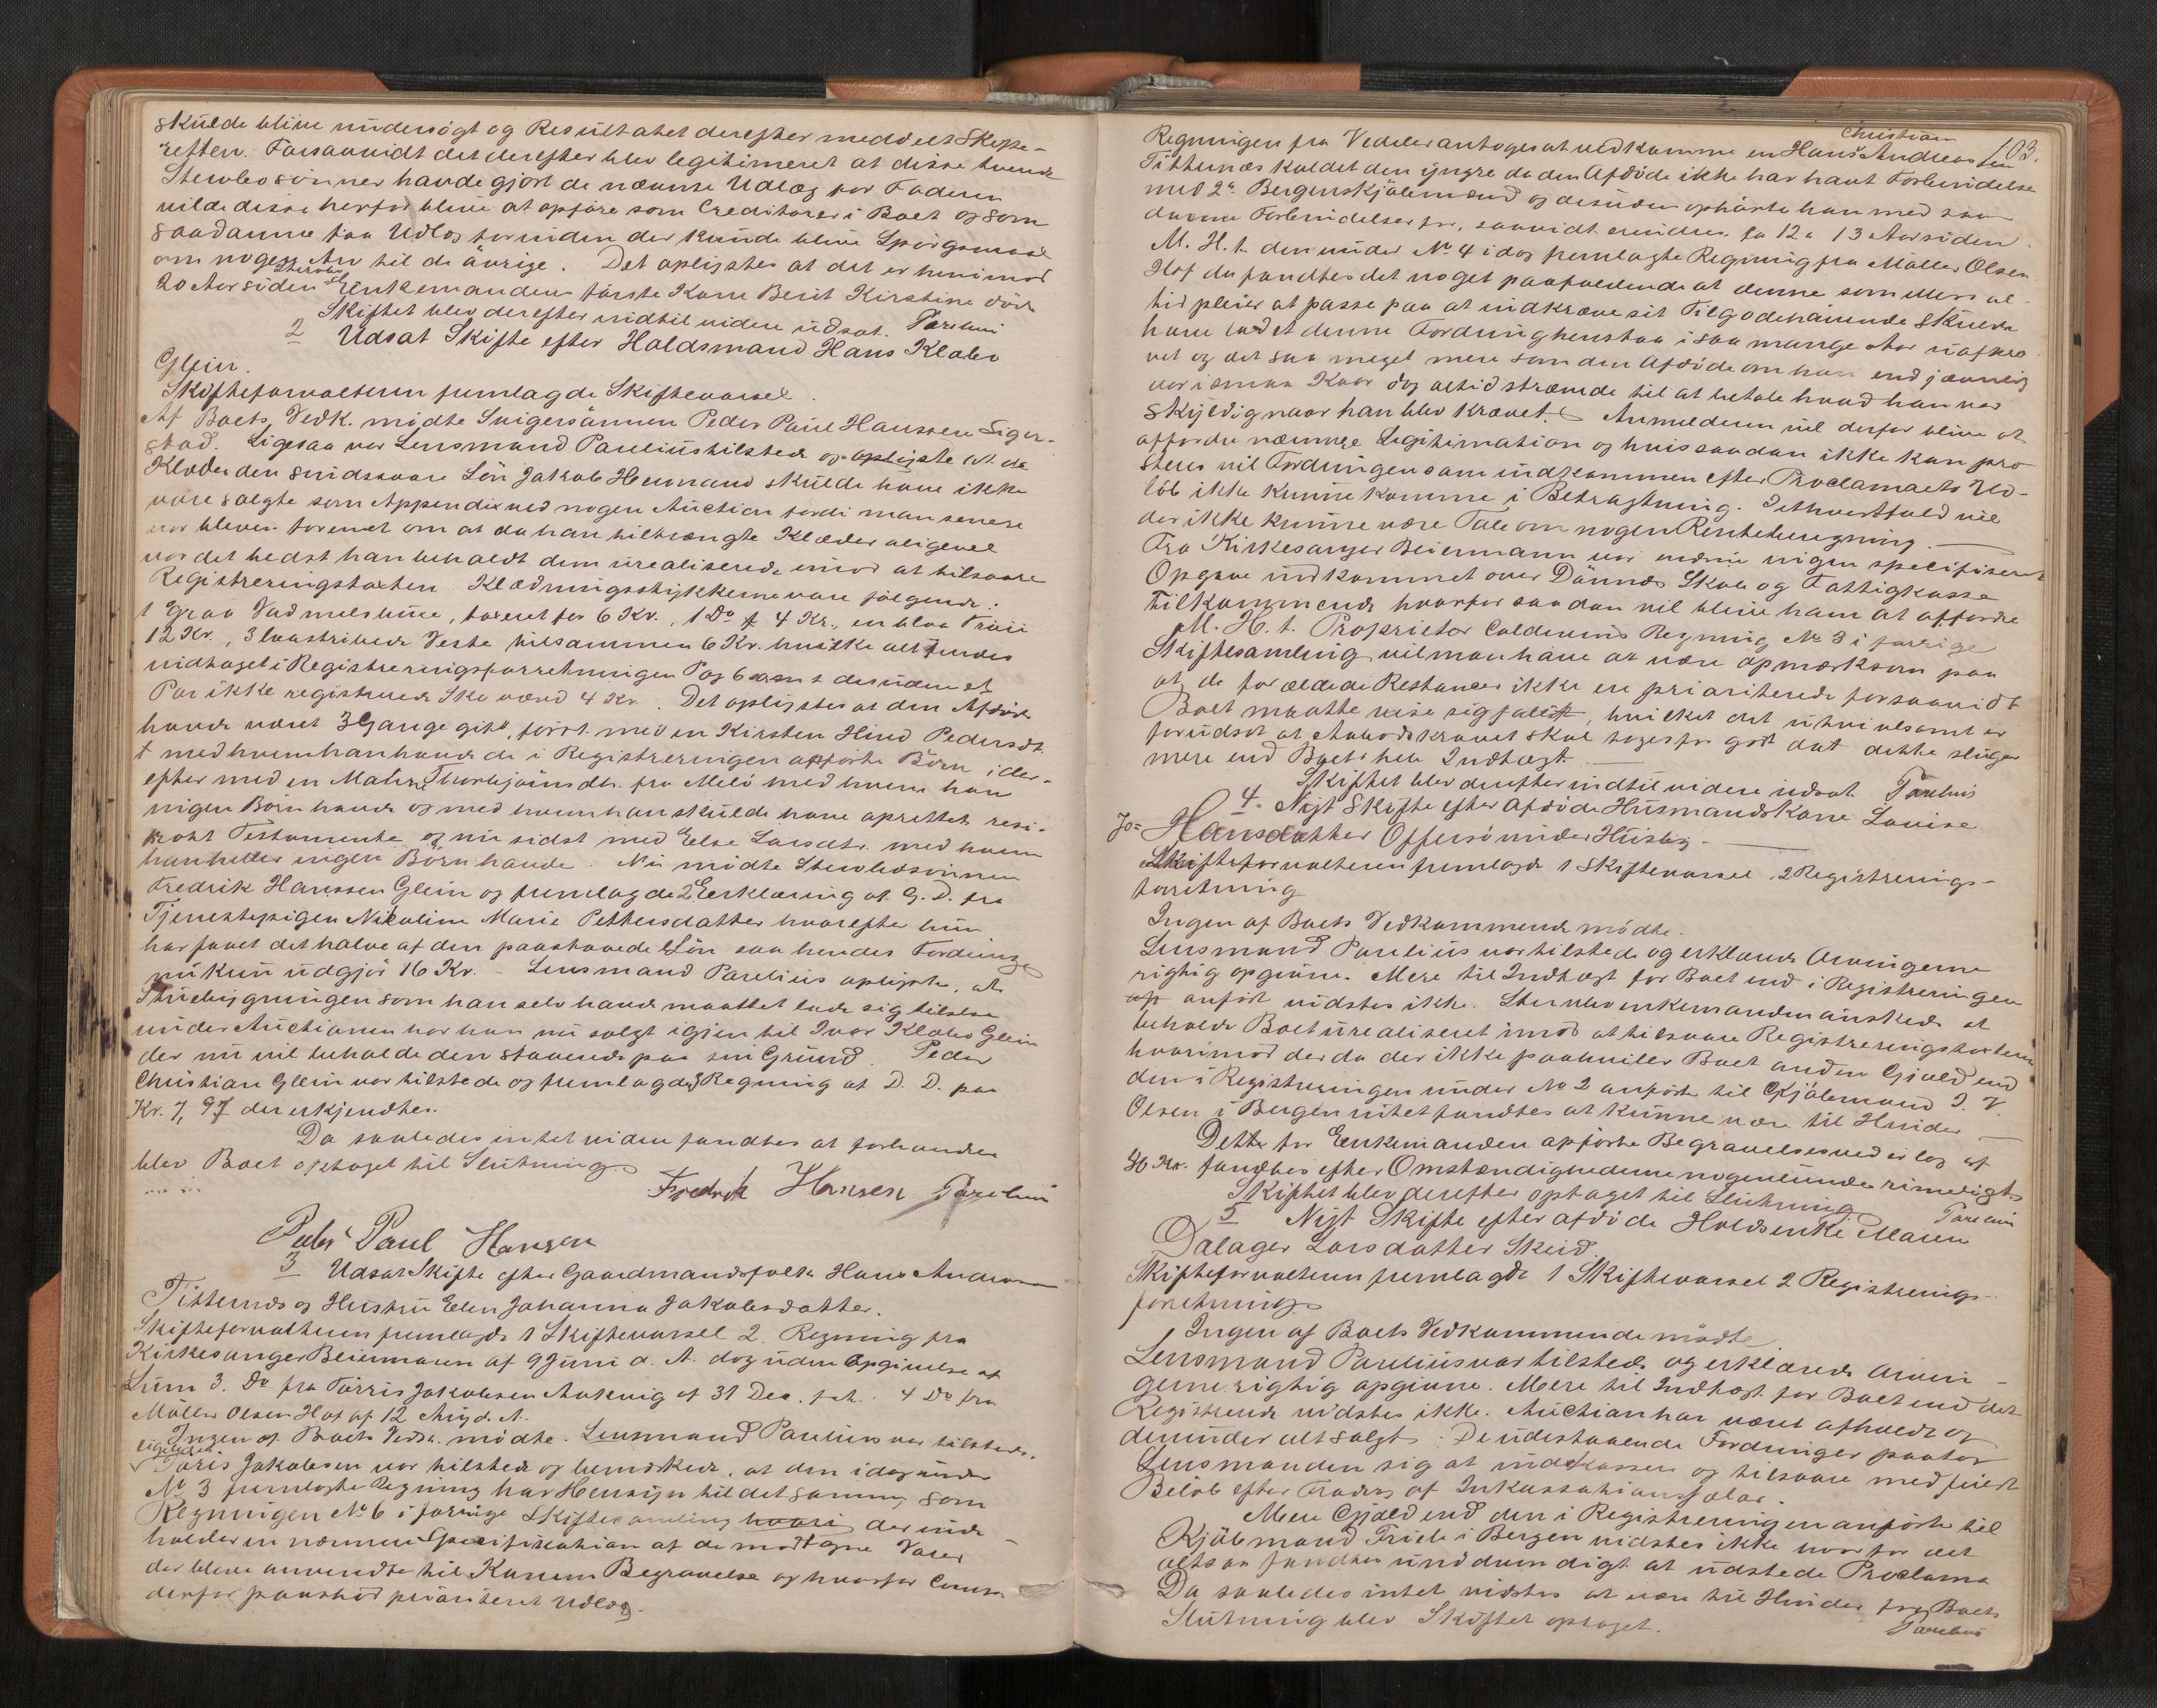 skulde blive undersøgt og Resultatet derefter meddelt Skifte-
retten. Forsaavidt det derefter blev legitimeret at disse tvende
Stervbosønner havde gjort de nævnte Udlæg for Faderen
vilde disse herfor blive at opføre som Creditorer i Boet og som
saadanne faa Udlæg foruden der kunde blive Spørgsmaal
om nogen Arv til de øvrige. Det oplystes at det er henimod
20 Aar siden Stervbo Enkemandens første Kone Berit Kirstine døde
Skiftet blev derefter indtil videre udsat. Parelius
2 Udsat Skifte efter Holdsmand Hans Klabo
Glein.
Skifteforvalteren fremlagde Skiftevarsel.
Af Boets Vedk. mødte Svigersønnen Peder Paul Hanssen Siger-
stad. Ligesaa var Lensmand Parelius tilstede og oplyste at de
Klæder den sindssvage Søn Jakob Hermand skulde have ikke
vare solgte som Appendix ved nogen Auction fordi man senere
var bleven forenet om at da han tiltrængte Klæder aligevel
var det bedst han beholdt dem urealiserede imod at tilsvare
Registreringstaxten. Klædningsstykkerne vare følgende:
1 graa Vadmelsbuxe, taxeret for 6 Kr., 1 Do f 4 Kr., en blaa Trøie
12 Kr., 3 Veste tilsammen 6 Kr. hvilke alt findes
vidtaget i Registreringsforretningen Pag 6 samt desuden et
Par ikke registrerede Sko værd 4 Kr. Det oplystes at den Afdøde
havde været 3 Gange gift, først med en Kirsten Hind Pedersdt.
+ med hvem han havde de i Registreringen opførte Børn, ider-
efter med en Maren Thorbjørnsdtr. fra Melø med hvem han
ingen Børn havde og med hvem han skulde have oprettet resi-
prokt Testamente og nu sidst med Else Larsdtr. med hvem
han heller ingen Børn havde. Nu mødte Stervbosønnen
Fredrik Hanssen Glein og fremlagde 2 Erklæring af G. D. fra
Tjenestepigen Nikoline Marie Pettersdatter hvorefter hun
har faaet det halve af den paastaaede Løn saa hendes Fordring
nu kun udgjør 16 Kr. - Lensmand Parelius oplyste, at
Stuebygningen som han selv havde maattet lade sig tilslaa
under Auctionen har han nu solgt igjen til Ivar Klabo Glein
der nu vil beholde den staaende paa sin Grund. Peder
Christian Glein var tilstede og fremlagde 3 Regning af D. D. paa
Kr. 7,97 der erkjendtes.
Da saaledes intet videre fandtes at forhandle
blev Boet optaget til Slutning.
Fredrik Hansen Parelius
Peder Paul Hansen
3 Udsat Skifte efter Gaardmandsfolk Hans Andreassen
Titternes og Hustru Elen Johanna Jakobsdatter.
Skifteforvalteren fremlagde 1 Skiftevarsel 2. Regning fra
Kirkesanger Beiermann af 9 Juni d. A. dog uden Opgivelse af
Sum 3. Do fra Tørris Jakobsen Aakvig af 31 Dec. f. A. 4 Do fra
Møller Olsen Hof af 12 Aug d. A.
Ingen af Boets Vedk. mødte. Lensmand Parelius var tilstede.
ligeledes
Tøris Jakobsen var tilstede og bemærkede, at den idag under
No 3 fremlagte Regning har Hensyn til det samme som
Regningen No 6 i forrige Skiftesamling hvori der inde-
holder en nærmere Specifikation af de modtagne Varer
der bleve anvendte til Konens Begravelse og hvorfor Comp.
derfor paastod prioriteret Udlæg.
103.
Christian
Regningen fra Vedeler antoges at vedkomme en Hans Andreassen
Titternæs kaldet den yngre da den Afdøde ikke har havt Forbindelse
med Bergenskjøbmænd og desuden ophørte han med saa-
danne Forbindelser for, saavidt erindres fa 12 a 13 Aar siden.
M. H. t. den under No 4 idag fremlagte Regning fra Møller Olsen
Hof da fandtes det noget paafaldende at denne som ellers al-
tid pleier at passe paa at indkræve sit Tilgodehavende skulde
have ladet denne Fordring henstaa i saa mange Aar uafkræ-
vet og det saa meget mere som den Afdøde om han end jævnlig
var i smaa Kaar dog altid stræbte til at betale hvad han var
skyldig naar han blev krævet. Anmelderen vil derfor blive at
affordre nærmere Legitimation og hvis saadan ikke kan præ-
steres vil Fordringen som indkommen efter Proclamaets Ud-
løb ikke kunne komme i Betragtning. I ethvertfald vil
der ikke kunne være Tale om nogen Renteberegning.
Fra Kirkesanger Beiermann var endnu ingen specifiseret
Opgave indkommet over Dønnes Skole og Fattigkasse
tilkommende hvorfor saadan vil blive ham at affordre
M. H. t. Proprietær Coldevins Regning No 3 i forrige
Skiftesamling vil man have at være opmærksom paa
at de forældede Restancer ikke er prioriterede forsaavidt
Boet maatte vise sig fallit, hvilket det utvivlsomt er
forudsat at Aabodskravet skal tages for godt dat dette sluger
mere end Boets hele Indtægt
Skiftet blev derefter indtil videre udsat Parelius
4. Nyt Skifte efter afdøde Husmandskone Lovise
Jo- Hansdatter Offersø under Husby.
Skifteforvalteren fremlagde 1 Skiftevarsel, 2 Registrerings-
forretning
Ingen af Boets Vedkommende mødte.
Lensmand Parelius var tilstede og erklærede Arvingerne
rigtig opgivne. Mere til Indtægt for Boet end i Registreringen
op anført vidstes ikke. Stervboenkemanden ønskede at
beholde Boet urealiseret imod at tilsvare Registreringstaxten
hvorimod der da der ikke paahviler Boet anden Gjæld end
den i Registreringen under No 2 anførte til Kjøbmand J. V.
Olsen i Bergen intet fandtes at kunne være til Hinder
Dette for Enkemanden opførte Begravelsesvederlag af
36 Kr. fandtes efter Omstændighederne nogenlunde rimeligt.
Skiftet blev derefter optaget til Slutning
Parelius
5 Nyt Skifte efter afdøde Holdsenke Maren
Dalager Larsdatter Skeid.
Skifteforvalteren fremlagde 1 Skiftevarsel 2 Registrerings-
forretning
Ingen af Boets Vedkommende mødte
Lensmand Parelius var tilstede og erklærede Arvin-
gerne rigtig opgivne. Mere til Indtægt for Boet end det
Registrerede vidstes ikke. Auction har været afholdt og
derunder alt solgt. De udestaaende Fordringer paatog
Lensmanden sig at indkassere og tilsvare med fuldt
Beløb efter Fradrag af Inkassationssalær.
Mere Gjæld end den i Registreringen anførte til
Kjøbmand Friele i Bergen vidstes ikke hvorfor det
altsaa fandtes unødvendigt at udstede Proclama
Da saaledes intet vidstes at være til Hinder for Boets
Slutning blev Skiftet optaget.
Parelius